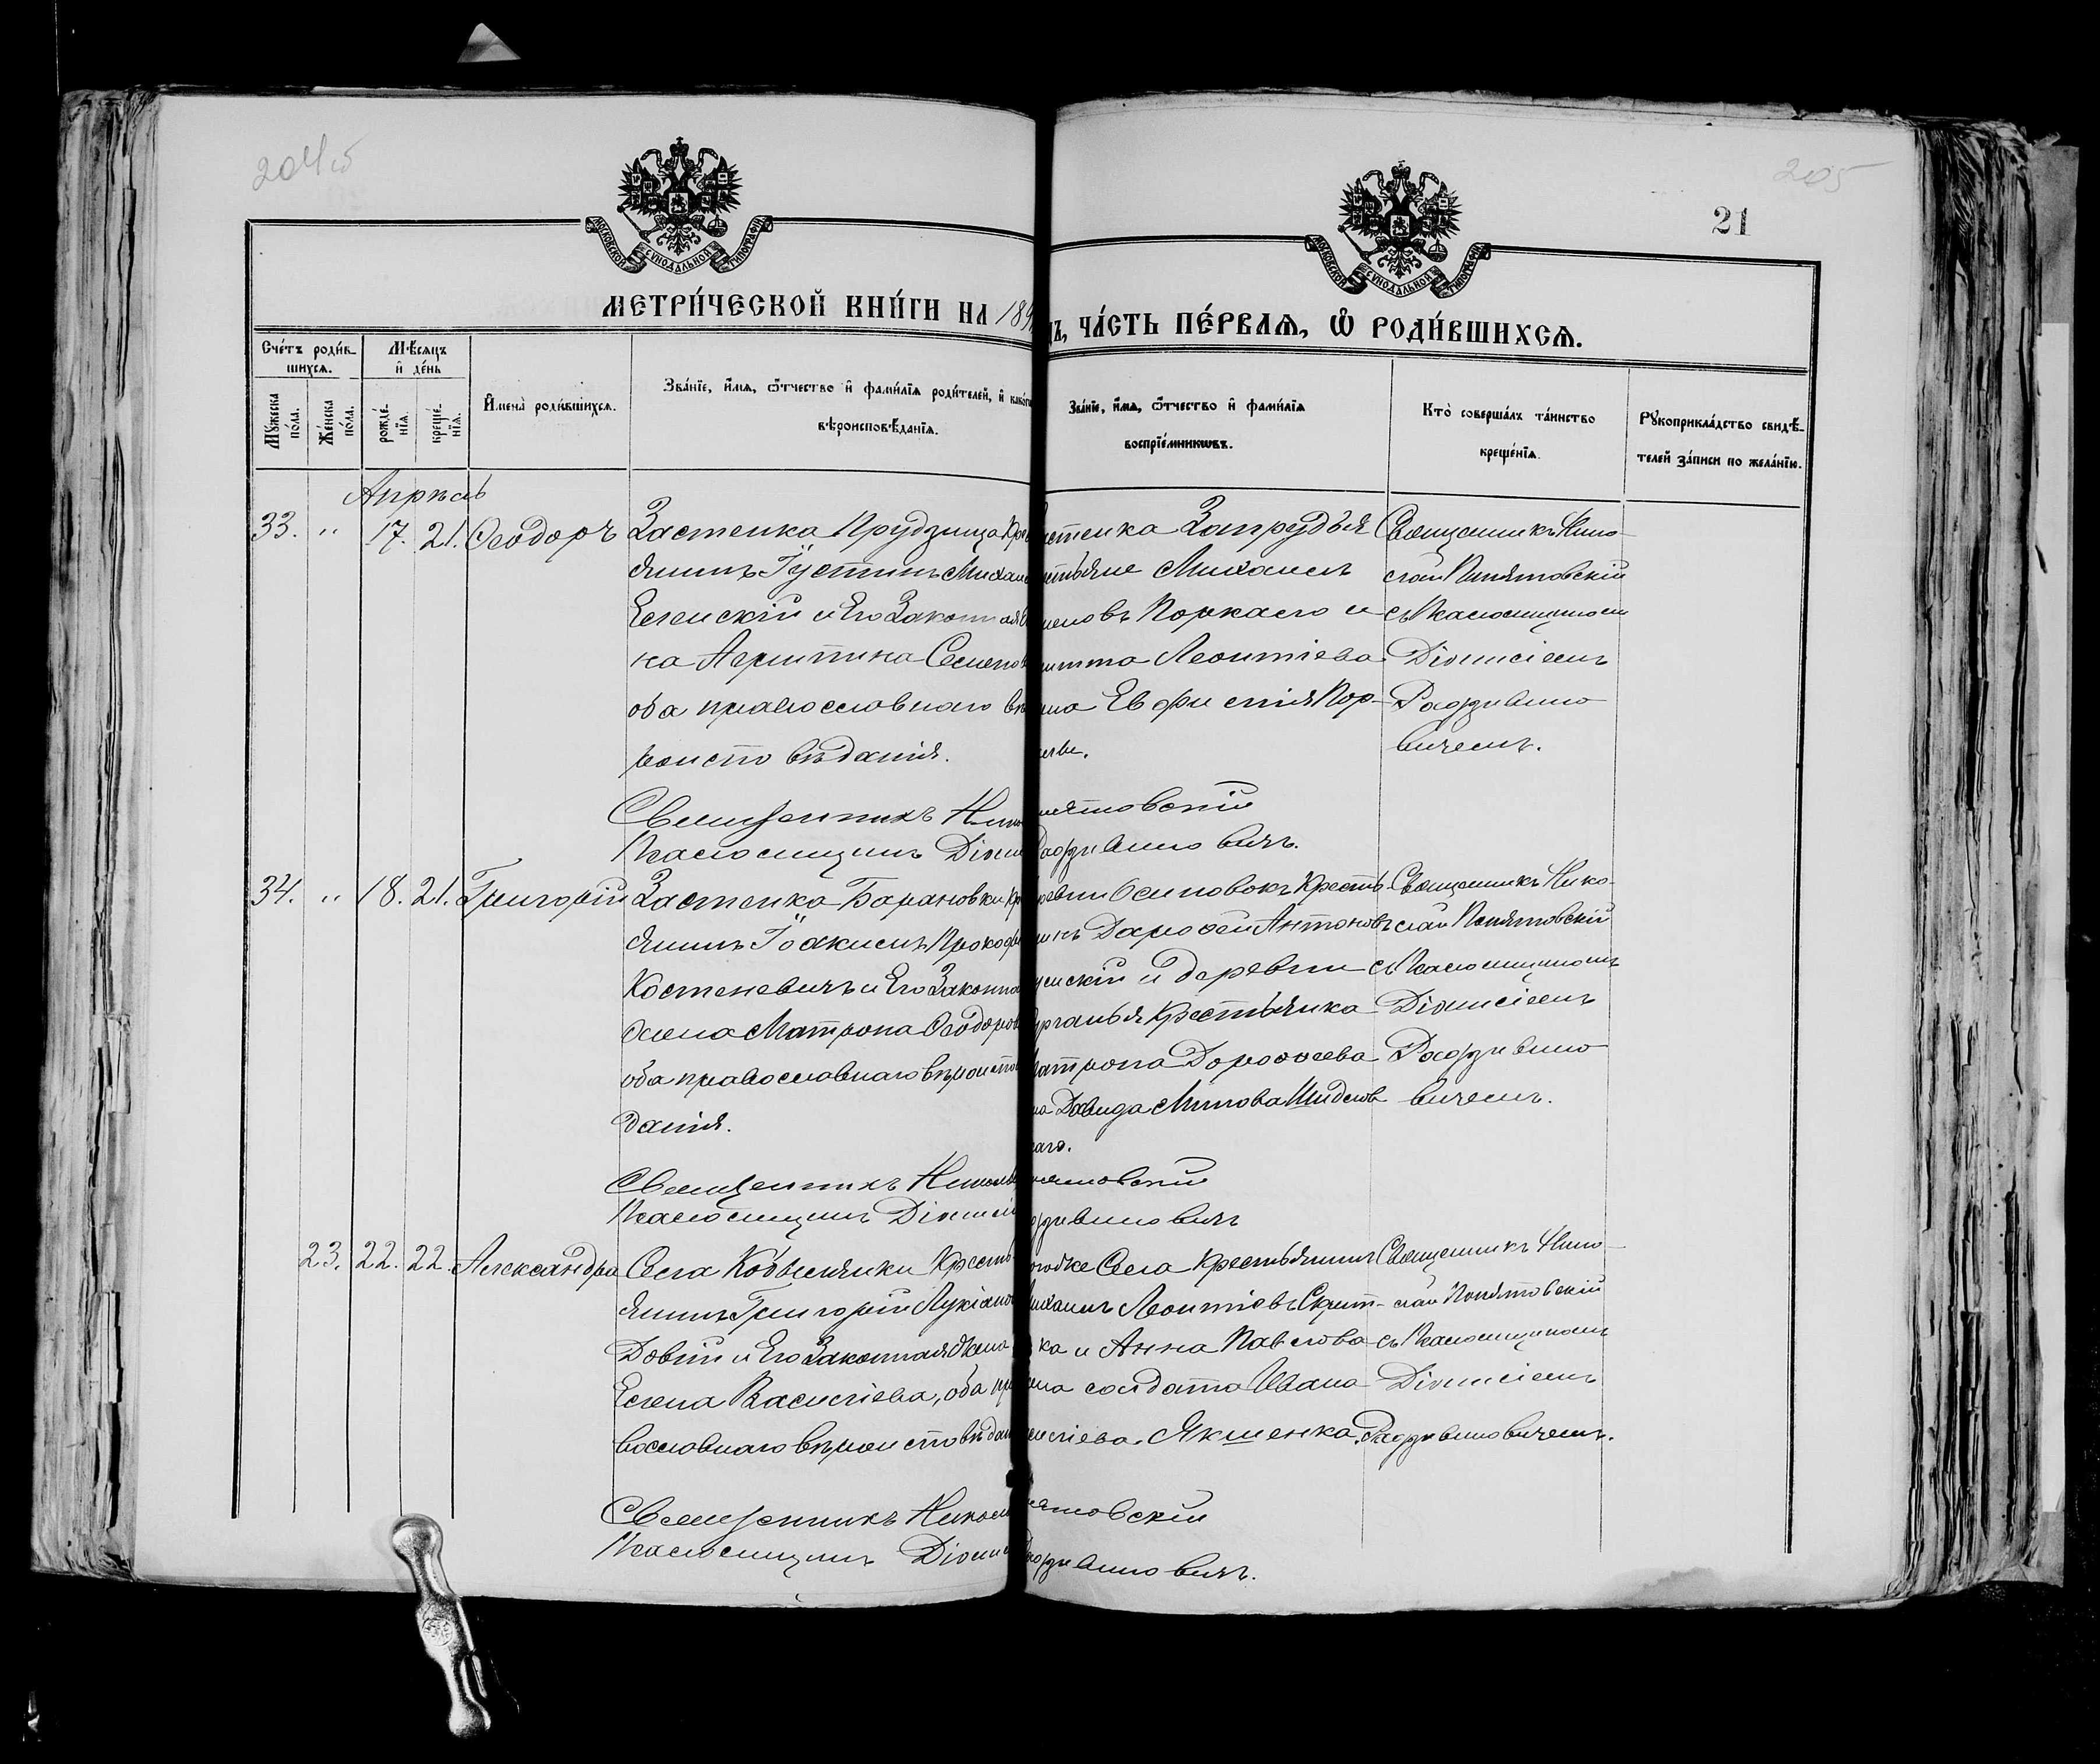 204об
205
21
МОСКОВСКОЙ СѴНОДАЛЬНОЙ ТИПОГРАФІИ
МОСКОВСКОЙ СѴНОДАЛЬНОЙ ТИПОГРАФІИ
МЕТРИ́ЧЕСКОЙ КНИ́ГИ НА 189
ЧА́СТЬ ПЕ́РВАЯ, Ѡ҆ РОДИ́ВШИХСЯ.
Сче́тъ роди́в-
шихся.
Мꙋ́жеска по́ла.
Же́нска по́ла.
Мѣ́сяцъ
и҆ де́нь
рожде́-
нїя.
креще́-
нїя.
И҆мена̀ роди́вшихся.
Зва́нїе, и҆́мя, ѻ҆́тчество и҆ фами́лїя роди́телей, и҆
вѣроисповѣ́данїя.
Зва́нїе, и҆́мя, ѻ҆́тчество и҆ фами́лїя
воспрїе́мникѡвъ.
Кто̀ соверша́лъ та́инство
креще́нїя.
Рꙋкоприкла́дство свидѣ́-
телей за́писи по жела́нїю.
Апрѣль
33. " 17. 21. Ѳеодоръ
Застенка Прудзища Кре
янинъ Іустинъ Михаи
и Его Законная
ка Семенов
оба православнаго вѣ
роисповѣданія.
стенка Запрудья
стьяне Михаилъ
еновъ и
Леонтіева
на Евфимія Пор-
Священникъ Нико-
лай Понятовскій
съ Псаломщикомъ
Діонисіемъ
Раздвино
вичемъ.
Священникъ Нико
нятовскій
Псаломщикъ Діони
Раздвиновичъ.
34. " 18. 21. Григорій
Застенка Барановки Кр
янинъ Іоакимъ Прокофі
Костеневичъ и Его Законна
жена Матрона Ѳеодоров
оба православнаго вѣроиспов
данія.
ревни Осиповокъ Кресть-
инъ Дороѳей Антоновъ
скій и деревни
Крестьянка
атрона Дороѳеева
на Давида
каго.
Священникъ Нико-
лай Понятовскій
съ Псаломщикомъ
Діонисіемъ
Раздвино
вичемъ.
Священникъ Никола
нятовскій
Псаломщикъ Діонисі
здвиновичъ
23. 22. 22. Александра
Села Кобыльники Кресть
янинъ Григорій Лукіано
и Его Законная Жена
Елена Василіева, оба пра
вославнаго вѣроисповѣдан
огоже Села Крестьянинъ
ихаилъ Леонтіевъ
ка и Анна Павлова
ена солдата Ивана
силіева Якшенка.
Священникъ Нико-
лай Понятовскій
съ Псаломщикомъ
Діонисіемъ
Раздвиновичемъ.
Священникъ Никол
ятовскій
Псаломщикъ Діони
Раздвиновичъ.